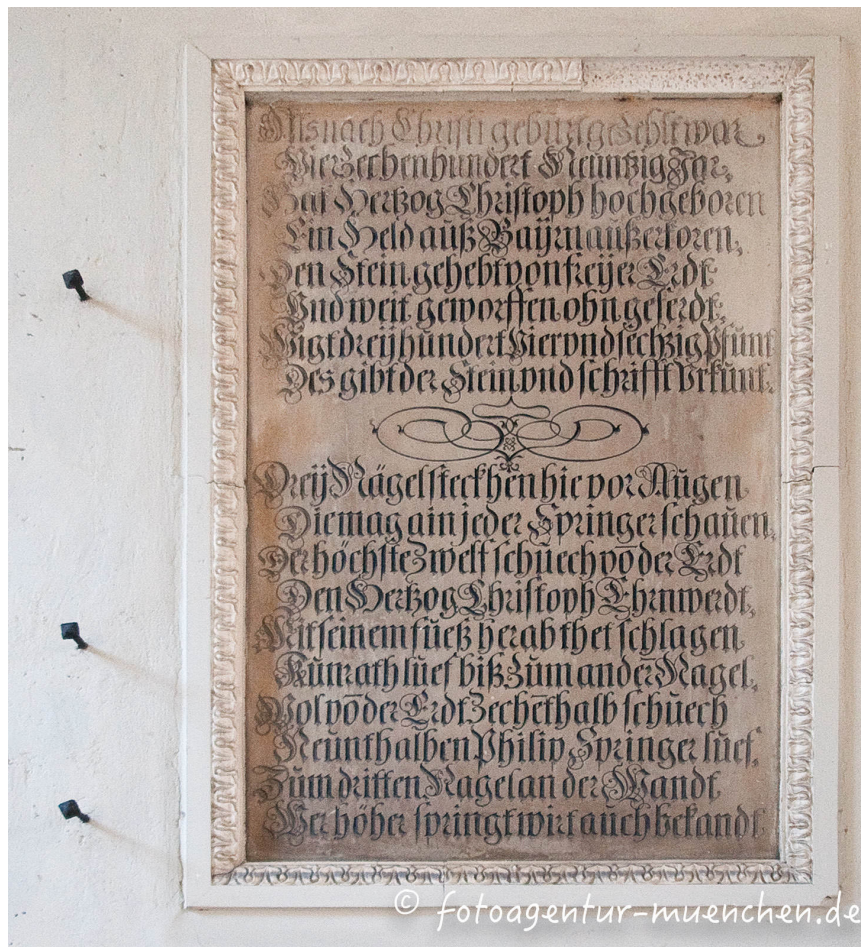 Als nach Christi gebürt gezehlt war
Vierzechenhundert Neuntzig Jar,
Hat Hertzog Christoph hochgeboren
Ein Held auß Bayrn außerkoren,
Den Stein gehebt von freyer Erdt
Vnd weit geworffen ohn geferdt,
Wigt dreyhundert Vier vnd sechzig Pfunt
Des gibt der Stein vnd schrifft Vrkunt.
Dreij Nägel steckhen hie vor Augen
Die mag ain jeder Springer schauen,
Der höchste Zwelf schuech vō der Erdt
Den Hertzog Christoph Ehrnwerdt,
Mit seinem fueß herab thet schlagen
Kunrath luef biß zum ander Nagel,
Wol vō der Erdt Zechēthalb schuech
Neunthalben Philip Springer luef,
Zum dritten Nagel an der Wandt
Wer höher springt wirt auch bekandt.
© fotoagentur-muenchen.de